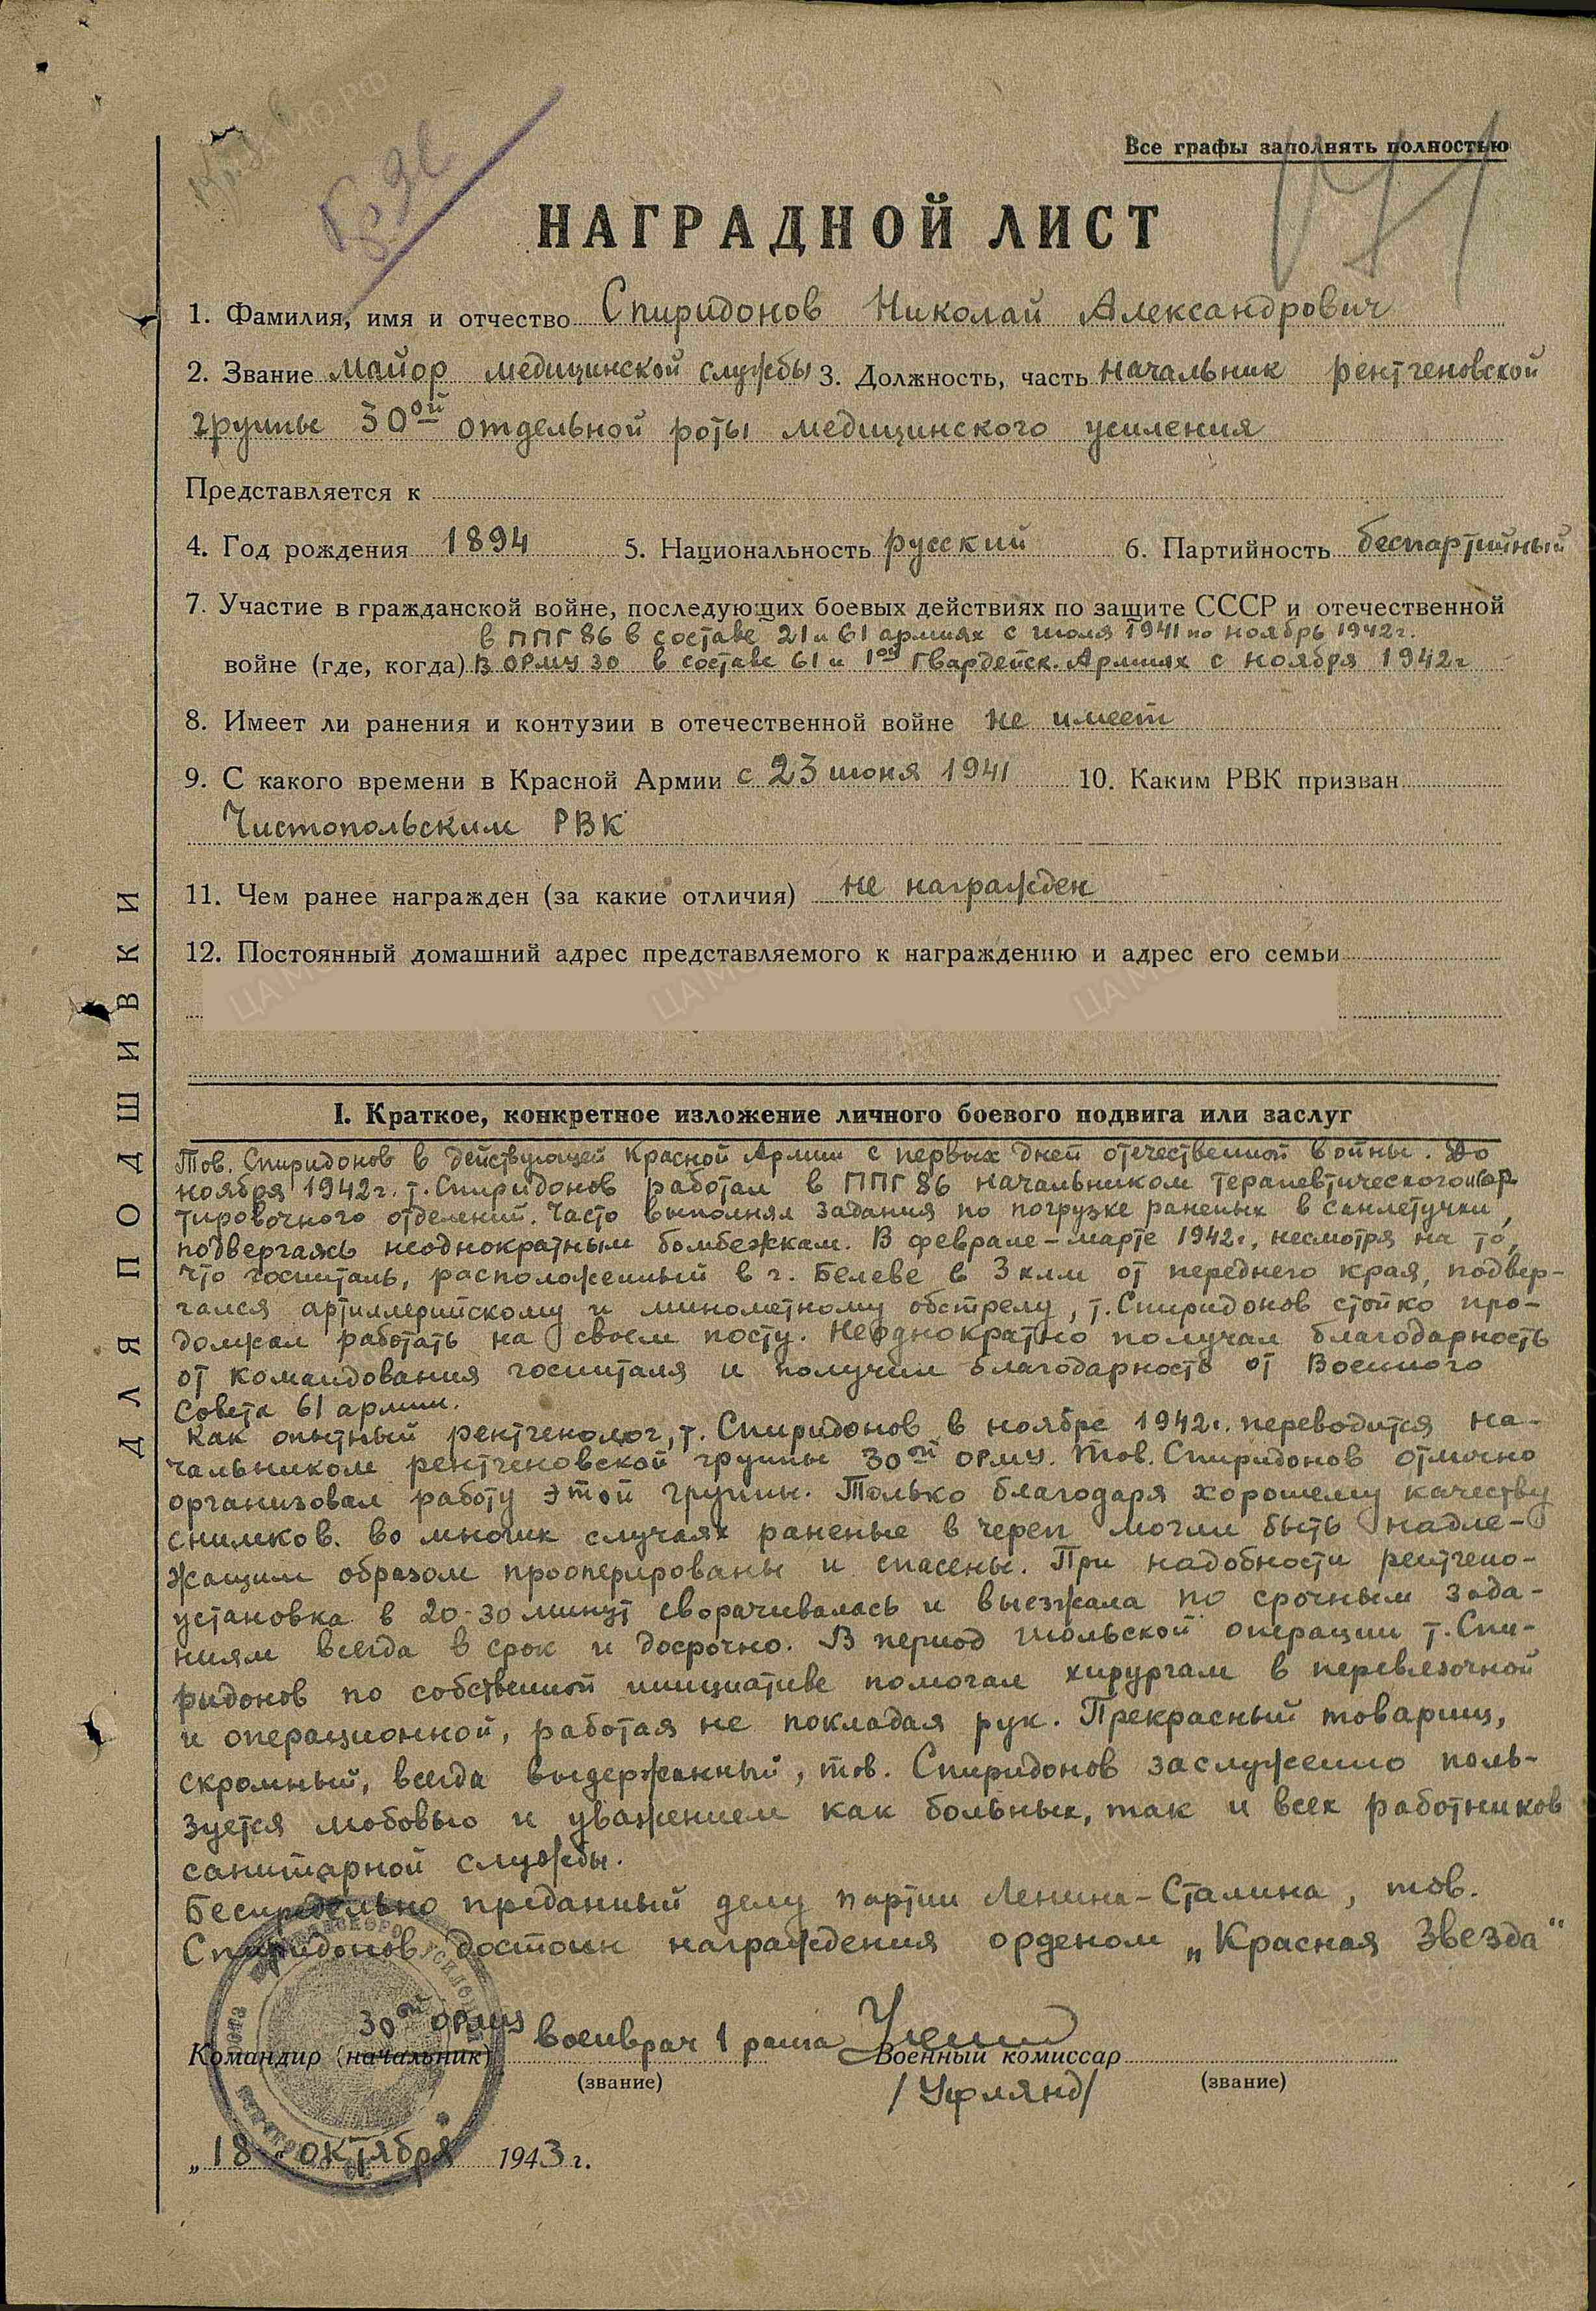 Все графы заполнять полностью
НАГРАДНОЙ ЛИСТ
1. Фамилия, имя и отчество Спиридонов Николай Александрович
2. Звание майор медицинской службы 3. Должность, часть начальник рентгеновской
группы 30ой отдельной роты медицинского усиления
Представляется к
4. Год рождения 1894 5. Национальность русский 6. Партийность беспартийный
7. Участие в гражданской войне, последующих боевых действиях по защите СССР и отечественной
в ППГ 86 в составе 21 и 61 армиях с июля 1941 по ноябрь 1942г.
войне (где, когда) В ОРМУ 30 в составе 61 и 1ой Гвардейск. Армиях с ноября 1942г
8. Имеет ли ранения и контузии в отечественной войне не имеет
9. С какого времени в Красной Армии с 23 июня 1941 10. Каким РВК призван
Чистопольским РВК
11. Чем ранее награжден (за какие отличия) не награжден
12. Постоянный домашний адрес представляемого к награждению и адрес его семьи
ДЛЯ ПОДШИВКИ
I. Краткое, конкретное изложение личного боевого подвига или заслуг
Тов. Спиридонов в действующей Красной Армии с первых дней отечественной войны. До
ноября 1942г. т. Спиридонов работал в ППГ 86 начальником терапевтического и сор
тировочного отделений. Часто выполнял задания по погрузке раненых в санлетучки,
подвергаясь неоднократным бомбежкам. В феврале-марте 1942г., несмотря на то,
что госпиталь, расположенный в г. Белеве в 3 клм от переднего края, подвер-
гался артиллерийскому и минометному обстрелу, т. Спиридонов стойко про-
должал работать на своем посту. Неоднократно получал благодарность
от командования госпиталя и получил благодарность от Военного
Совета 61 армии.
Как опытный рентгенолог, т. Спиридонов в ноябре 1942г. переводится на-
чальником рентгеновской группы 30ой ОРМУ. Тов. Спиридонов отлично
организовал работу этой группы. Только благодаря хорошему качеству
снимков. во многих случаях раненые в череп могли быть надле-
жащим образом прооперированы и спасены. При надобности рентгено-
установка в 20-30 минут сворачивалась и выезжала по срочным зада-
ниям всегда в срок и досрочно. В период июльской операции т. Спи-
ридонов по собственной инициативе помогал хирургам в перевязочной
и операционной, работая не покладая рук. Прекрасный товарищ,
скромный, всегда выдержанный, тов. Спиридонов заслуженно поль-
зуется любовью и уважением как больных, так и всех работников
санитарной службы.
Беспредельно преданный делу партии Ленина-Сталина, тов.
Спиридонов достоин награждения орденом „Красная Звезда“
30ой ОРМУ
Командир (начальник) военврач 1 ранга Военный комиссар
(звание) /Уфлянд/ (звание)
„18“ октября 1943 г.
ЦА МО.РФ